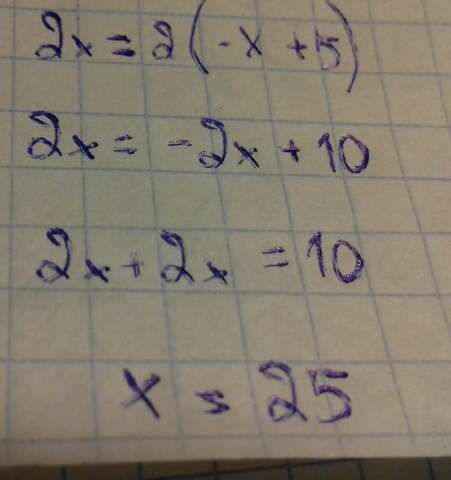 2x = 2(-x + 5)
2x = -2x + 10
2x + 2x = 10
x = 25